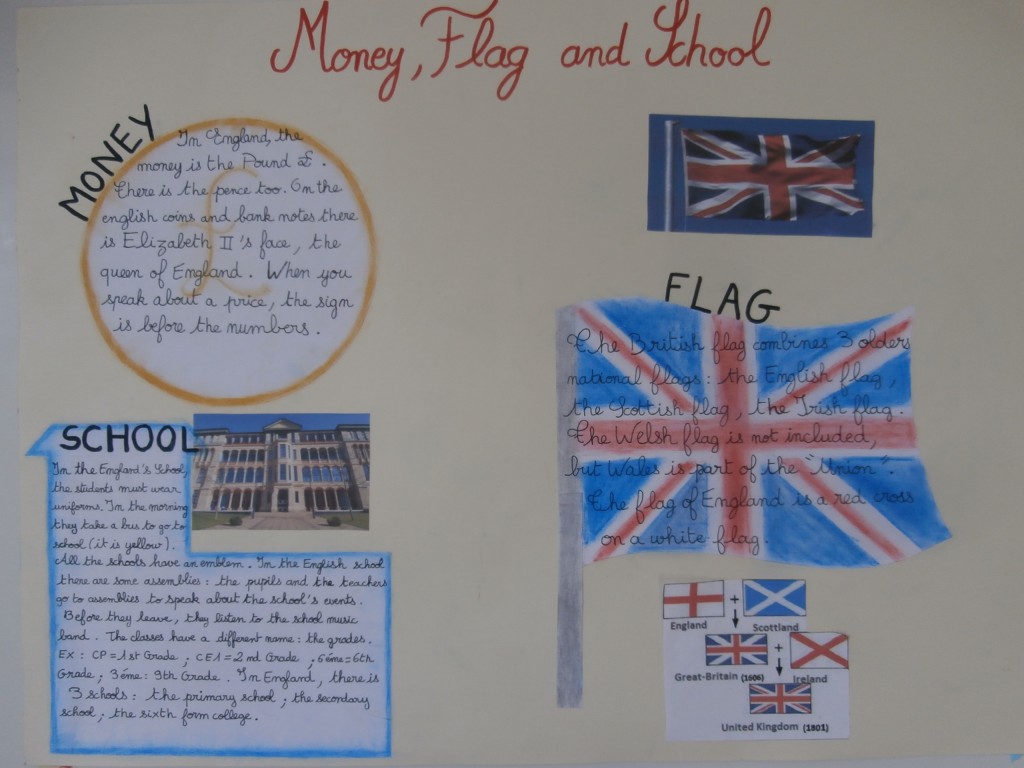 Money, Flag and School
MONEY
In England, the
money is the Pound £.
There is the pence too. On the
english coins and bank notes there
is Elizabeth II's face, the
queen of England. When you
speak about a price, the sign
is before the numbers.
£
SCHOOL
In the England's School,
the students must wear
uniforms. In the morning
they take a bus to go to
school (it is yellow).
All the schools have an emblem. In the English school
there are some assemblies: the pupils and the teachers
go to assemblies to speak about the school's events.
Before they leave, they listen to the school music
band. The classes have a different name: the grades.
Ex: CP=1st Grade; CE1=2nd Grade; 6éme=6th
Grade; 3éme: 9th Grade. In England, there is
3 schools: the primary school; the secondary
school; the sixth form college.
FLAG
The British flag combines 3 olders
national flags: the English flag,
the Scottish flag, the Irish flag.
The Welsh flag is not included,
but Wales is part of the "Union".
The flag of England is a red cross
on a white flag.
+
England
Scottland
+
Great-Britain (1606)
Ireland
United Kingdom (1801)